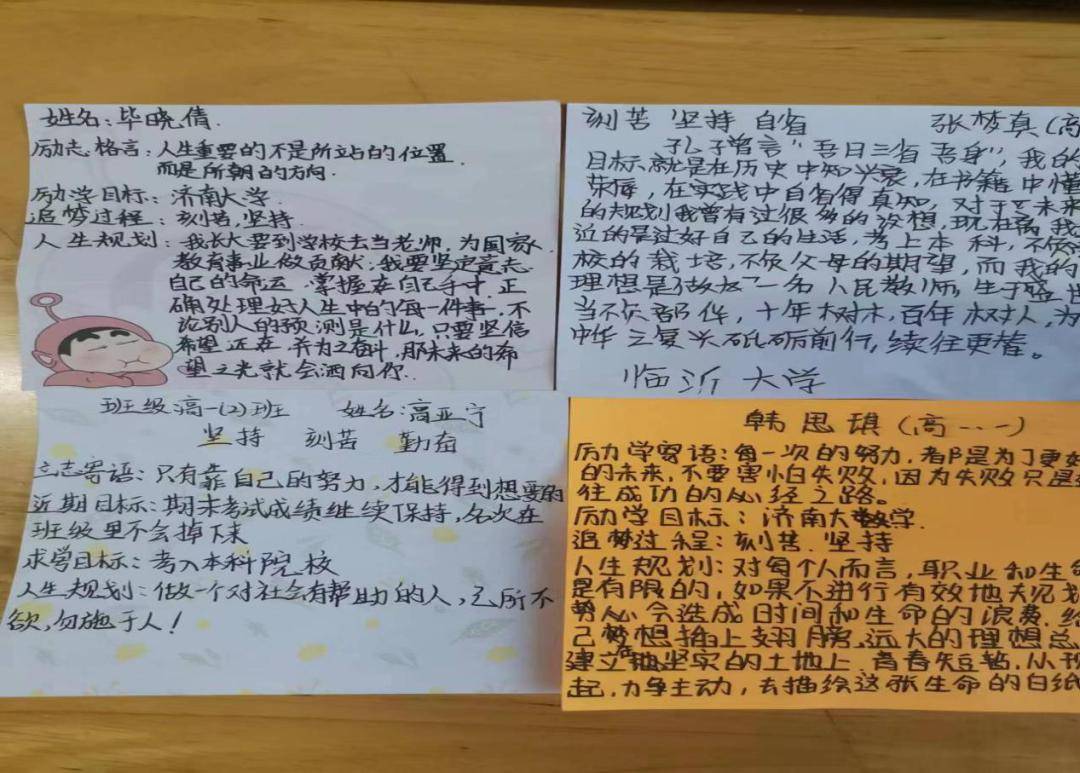 姓名：毕晓倩
励志格言：人生重要的不是所站的位置
而是所朝的方向
励学目标：济南大学
追梦过程：刻苦，坚持
人生规划：我长大要到学校去当老师，为国家
教育事业做贡献；我要坚定意志
自己的命运 掌握在自己手中.正
确处理好人生中的每一件事，不
论别人的预测是什么，只要坚信
希望还在 并为之奋斗，那未来的希
望之光就会洒向你.
刻苦 坚持 自省 张梦真(高
孔子曾言“吾日三省吾身”，我的
目标就是在历史中知兴衰，在书籍中懂
荣辱，在实践中自省得真知，对于未来
的规划我曾有过很多的设想，现在离我
近的是过好自己的生活，考上本科，不负
校的栽培，不负父母的期望，而我的
理想是做好一名人民教师，生于盛世
当不负韶华，十年树木，百年树人，为
中华之复兴砥砺前行，续往更替。
临沂大学
班级：高一(2)班 姓名：高亚宁
坚持 刻苦 勤奋
立志寄语：只有靠自己的努力，才能得到想要的
近期目标：期末考试成绩继续保持，名次在
班级里不会掉下来
求学目标：考入本科院校
人生规划：做一个对社会有帮助的人，己所不
欲，勿施于人！
韩思琪(高一.一)
励学寄语：每一次的努力，都是为了更好
的未来，不要害怕失败，因为失败只是
往成功的必经之路。
励学目标：济南大学
追梦过程：刻苦.坚持
人生规划：对每个人而言，职业和生命
是有限的，如果不进行有效地规划
势必会造成时间和生命的浪费.给
己梦想插上翅膀，远大的理想总
建立在坚实的土地上，青春短暂，从现
起，力争主动，去描绘这张生命的白纸